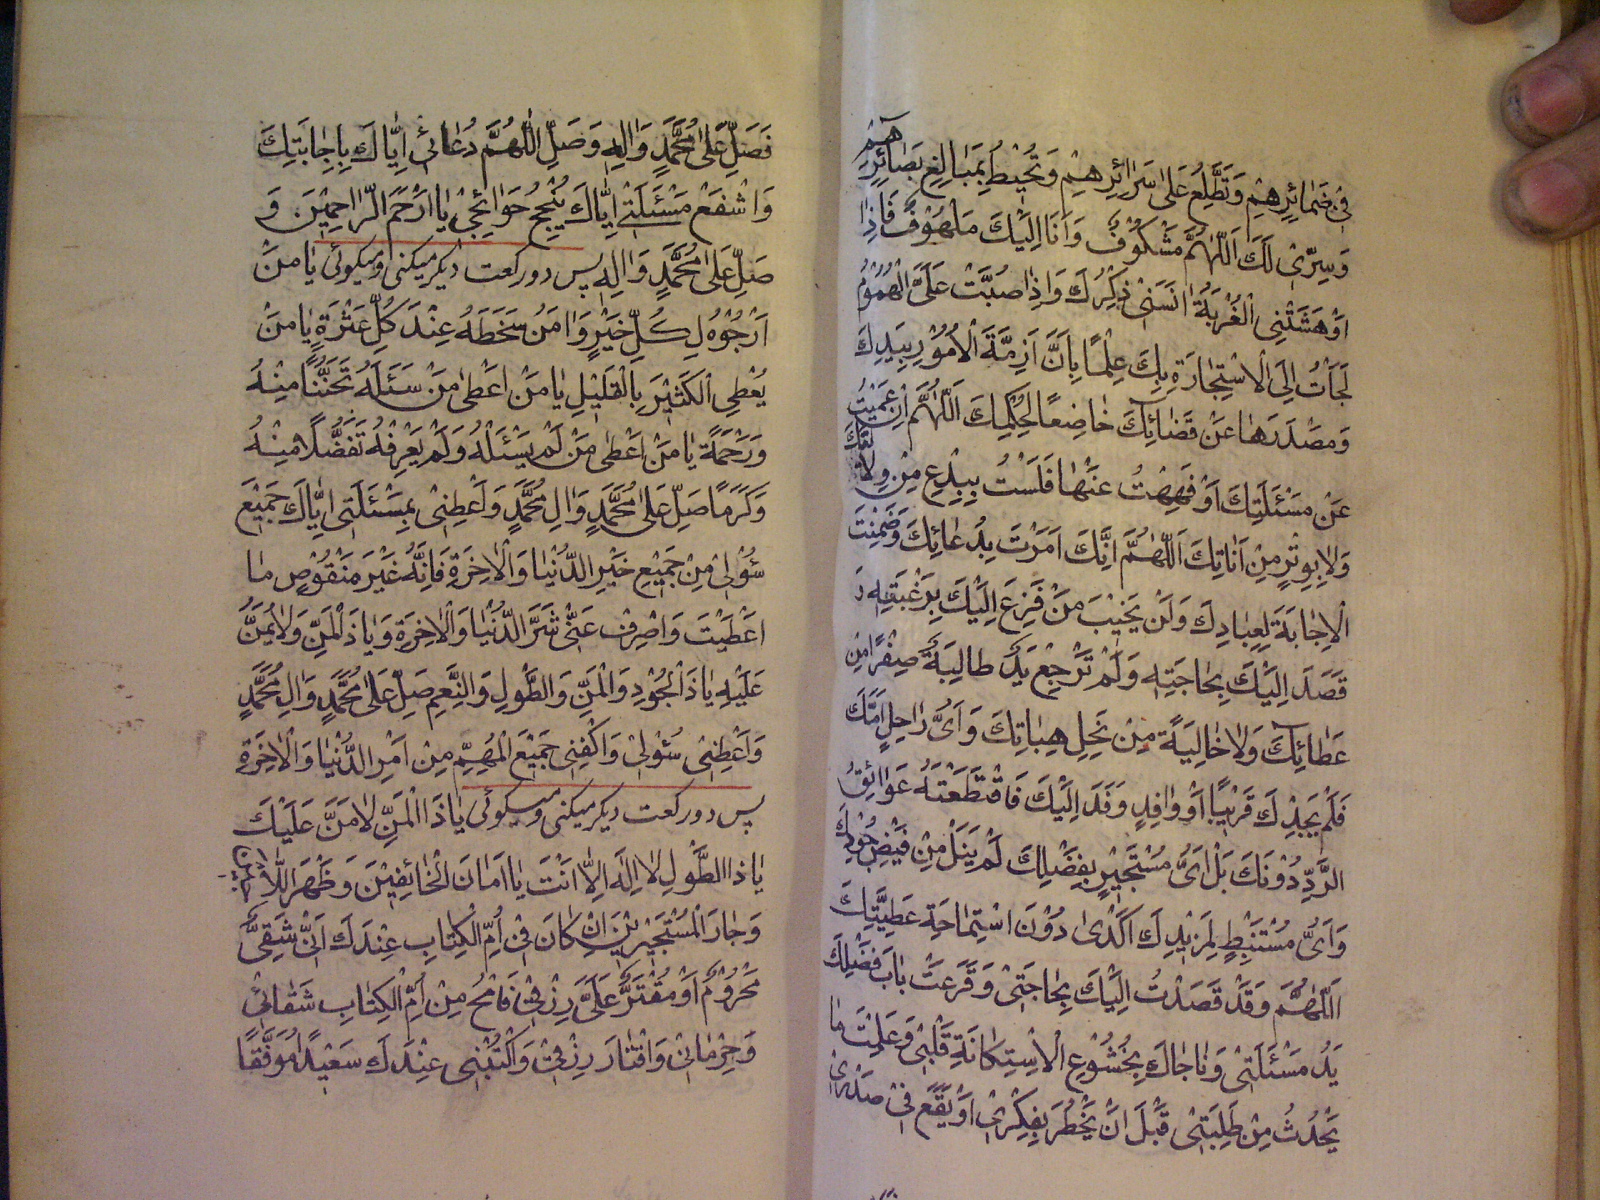 فِی ضَمٰائِرِهِمْ وَتَطَّلِعُ عَلیٰ سَرٰائِرِهِمْ وَتُحیٖطُ بِمَبٰالِغِ بَصٰائِرِهِمْ
وَسِرّیٖ لَكَ اَللّٰهُمَّ مَشْكُوْفٌ وَاَنَا اِلَیْكَ مَلْهُوْفٌ فَاِذٰا
اَوْحَشَتْنِی الْغُرْبَةُ اٰنَسَنیٖ ذِكْرُكَ وَاِذٰا صُبَّتْ عَلَیَّ الْهُمُوْمُ
لَجَأْتُ اِلَی الْاِسْتِجٰارَةِ بِكَ عِلْمًا بِاَنَّ اَزِمَّةَ الْاُمُوْرِ بِیَدِكَ
وَمَصْدَرَهٰا عَنْ قَضٰائِكَ خٰاضِعًا لِحُكْمِكَ اَللّٰهُمَّ اِنْ عَمیٖتُ
عَنْ مَسْئَلَتِكَ اَوْ فَهِهْتُ عَنْهٰا فَلَسْتُ بِبِدْعٍ مِنْ وِلٰایَتِكَ
وَلٰا بِوِتْرٍ مِنْ اَنٰاتِكَ اَللّٰهُمَّ اِنَّكَ اَمَرْتَ بِدُعٰائِكَ وَضَمِنْتَ
الْاِجٰابَةَ لِعِبٰادِكَ وَلَنْ یَخیٖبَ مَنْ فَزِعَ اِلَیْكَ بِرَغْبَتِهٖ وَ
قَصَدَ اِلَیْكَ بِحٰاجَتِهٖ وَلَمْ تَرْجِعْ یَدٌ طٰالِبَةٌ صِفْرًا مِنْ
عَطٰائِكَ وَلٰا خٰالِیَةً مِنْ نِحَلِ هِبٰاتِكَ وَاَیُّ رٰاحِلٍ اَمَّكَ
فَلَمْ یَجِدْكَ قَریٖبًا اَوْ وٰافِدٍ وَفَدَ اِلَیْكَ فَاقْتَطَعَتْهُ عَوٰائِقُ
الرَّدِّ دُوْنَكَ بَلْ اَیُّ مُسْتَجیٖرٍ بِفَضْلِكَ لَمْ یَنَلْ مِنْ فَیْضِ جُوْدِكَ
وَاَیُّ مُسْتَنْبِطٍ لِمَزیٖدِكَ اَكْدیٰ دُوْنَ اسْتِمٰاحَةِ عَطِیَّتِكَ
اَللّٰهُمَّ وَقَدْ قَصَدْتُ اِلَیْكَ بِحٰاجَتیٖ وَقَرَعَتْ بٰابَ فَضْلِكَ
یَدُ مَسْئَلَتیٖ وَنٰاجٰاكَ بِخُشُوْعِ الْاِسْتِكٰانَةِ قَلْبیٖ وَعَلِمْتَ مٰا
یَحْدُثُ مِنْ طَلِبَتیٖ قَبْلَ اَنْ یَخْطُرَ بِفِكْریٖ اَوْ یَقَعَ فیٖ صَدْریٖ
فَصَلِّ عَلیٰ مُحَمَّدٍ وَاٰلِهٖ وَصِلِ اللّٰهُمَّ دُعٰائیٖ اِیّٰاكَ بِاِجٰابَتِكَ
وَاشْفَعْ مَسْئَلَتیٖ اِیّٰاكَ بِنُجْحِ حَوٰائِجیٖ یٰا اَرْحَمَ الرّٰاحِمیٖنَ وَ
صَلِّ عَلیٰ مُحَمَّدٍ وَاٰلِهٖ پس دو ركعت دیكر میكنی و میكوئی یٰا مَنْ
اَرْجُوْهُ لِكُلِّ خَیْرٍ وَاٰمَنُ سَخَطَهُ عِنْدَ كُلِّ عَثْرَةٍ یٰا مَنْ
یُعْطِی الْكَثیٖرَ بِالْقَلیٖلِ یٰا مَنْ اَعْطیٰ مَنْ سَئَلَهُ تَحَنُّنًا مِنْهُ
وَرَحْمَةً یٰا مَنْ اَعْطیٰ مَنْ لَمْ یَسْئَلْهُ وَلَمْ یَعْرِفْهُ تَفَضُّلًا مِنْهُ
وَكَرَمًا صَلِّ عَلیٰ مُحَمَّدٍ وَاٰلِ مُحَمَّدٍ وَاَعْطِنیٖ بِمَسْئَلَتیٖ اِیّٰاكَ جَمیٖعَ
سُؤْلیٖ مِنْ جَمیٖعِ خَیْرِ الدُّنْیٰا وَالْاٰخِرَةِ فَاِنَّهُ غَیْرُ مَنْقُوْصٍ مٰا
اَعْطَیْتَ وَاصْرِفْ عَنّیٖ شَرَّ الدُّنْیٰا وَالْاٰخِرَةِ وَیٰا ذَا الْمَنِّ وَلٰا یُمَنُّ
عَلَیْهِ یٰا ذَا الْجُوْدِ وَالْمَنِّ وَالطَّوْلِ وَالنِّعَمِ صَلِّ عَلیٰ مُحَمَّدٍ وَاٰلِ مُحَمَّدٍ
وَاَعْطِنیٖ سُؤْلیٖ وَاكْفِنیٖ جَمیٖعَ الْمُهِمِّ مِنْ اَمْرِ الدُّنْیٰا وَالْاٰخِرَةِ
پس دو ركعت دیكر میكنی و میكوئی یٰا ذَا الْمَنِّ لٰا مَنَّ عَلَیْكَ
یٰا ذَا الطَّوْلِ لٰا اِلٰهَ اِلّٰا اَنْتَ یٰا اَمٰانَ الْخٰائِفیٖنَ وَظَهْرَ اللّٰاجیٖنَ
وَجٰارَ الْمُسْتَجیٖریٖنَ اِنْ كٰانَ فیٖ اُمِّ الْكِتٰابِ عِنْدَكَ اَنّیٖ شَقِیٌّ
مَحْرُوْمٌ اَوْ مُقْتَرٌ عَلَیَّ رِزْقیٖ فَامْحُ مِنْ اُمِّ الْكِتٰابِ شَقٰائیٖ
وَحِرْمٰانیٖ وَاِقْتٰارَ رِزْقیٖ وَاكْتُبْنیٖ عِنْدَكَ سَعیٖدًا مُوَفَّقًا